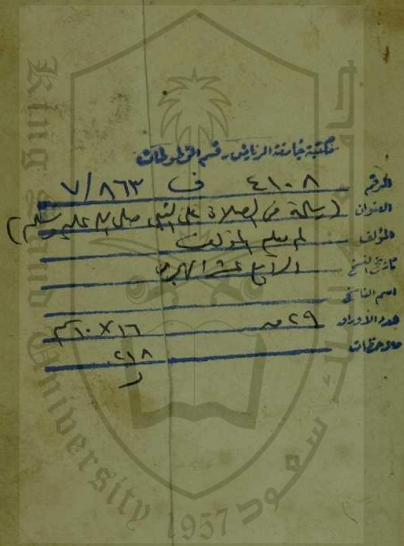 مكتبة جامعة الرياض - قسم المخطوطات
الرقم ٤١٠٨ ف ٧/٨٦٣
العنوان (رسالة من الصلاة على النبي صلى الله عليه وسلم)
المؤلف لم يعلم المؤلف
تاريخ النسخ الرابع عشر الهجري
اسم الناسخ
عدد الأوراق ٢٩ ١٦×١٠
ملاحظات ٢١٨
King Saud University
جامعة الملك سعود
1957